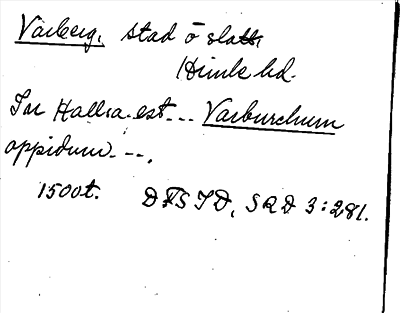 Varberg, stad o slott
Himle hd.
In Hallia est... Varburchum
oppidum ---.
1500t. DFSTD, SRD 3:281.